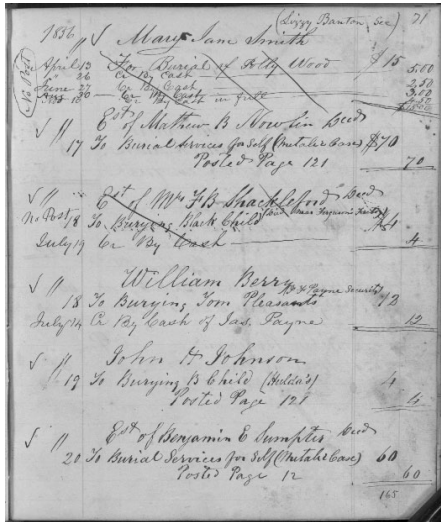 (Lizzy Banton Sec) 71
1856 √ Mary Jane Smith
No Post
April 13 For Burial of Wood $15
" 26 Cr By Cash 5.00
June 27 Cr By Cash 2.50
Cr By Cash
Cr By Cash in full
√ " Est of Mathew B Nowlin Decd
17 To Burial Services for Self (Metalic Case) $70
Posted Page 121 70
√ " Est of Mrs F B Shackleford Decd
No Post 18 To Burying Black Child $4
July 19 Cr By Cash 4
√ " William Berry
18 To Burying Tom Pleasants Payne Security 12
July 14 Cr By Cash of Jas. Payne 12
√ " John H Johnson
19 To Burying B Child (Hulda's) 4
Posted Page 121 4
√ " Est of Benjamin E Sumpter Decd
20 To Burial Services for Self (Metalic Case) 60
Posted Page 12 60
165